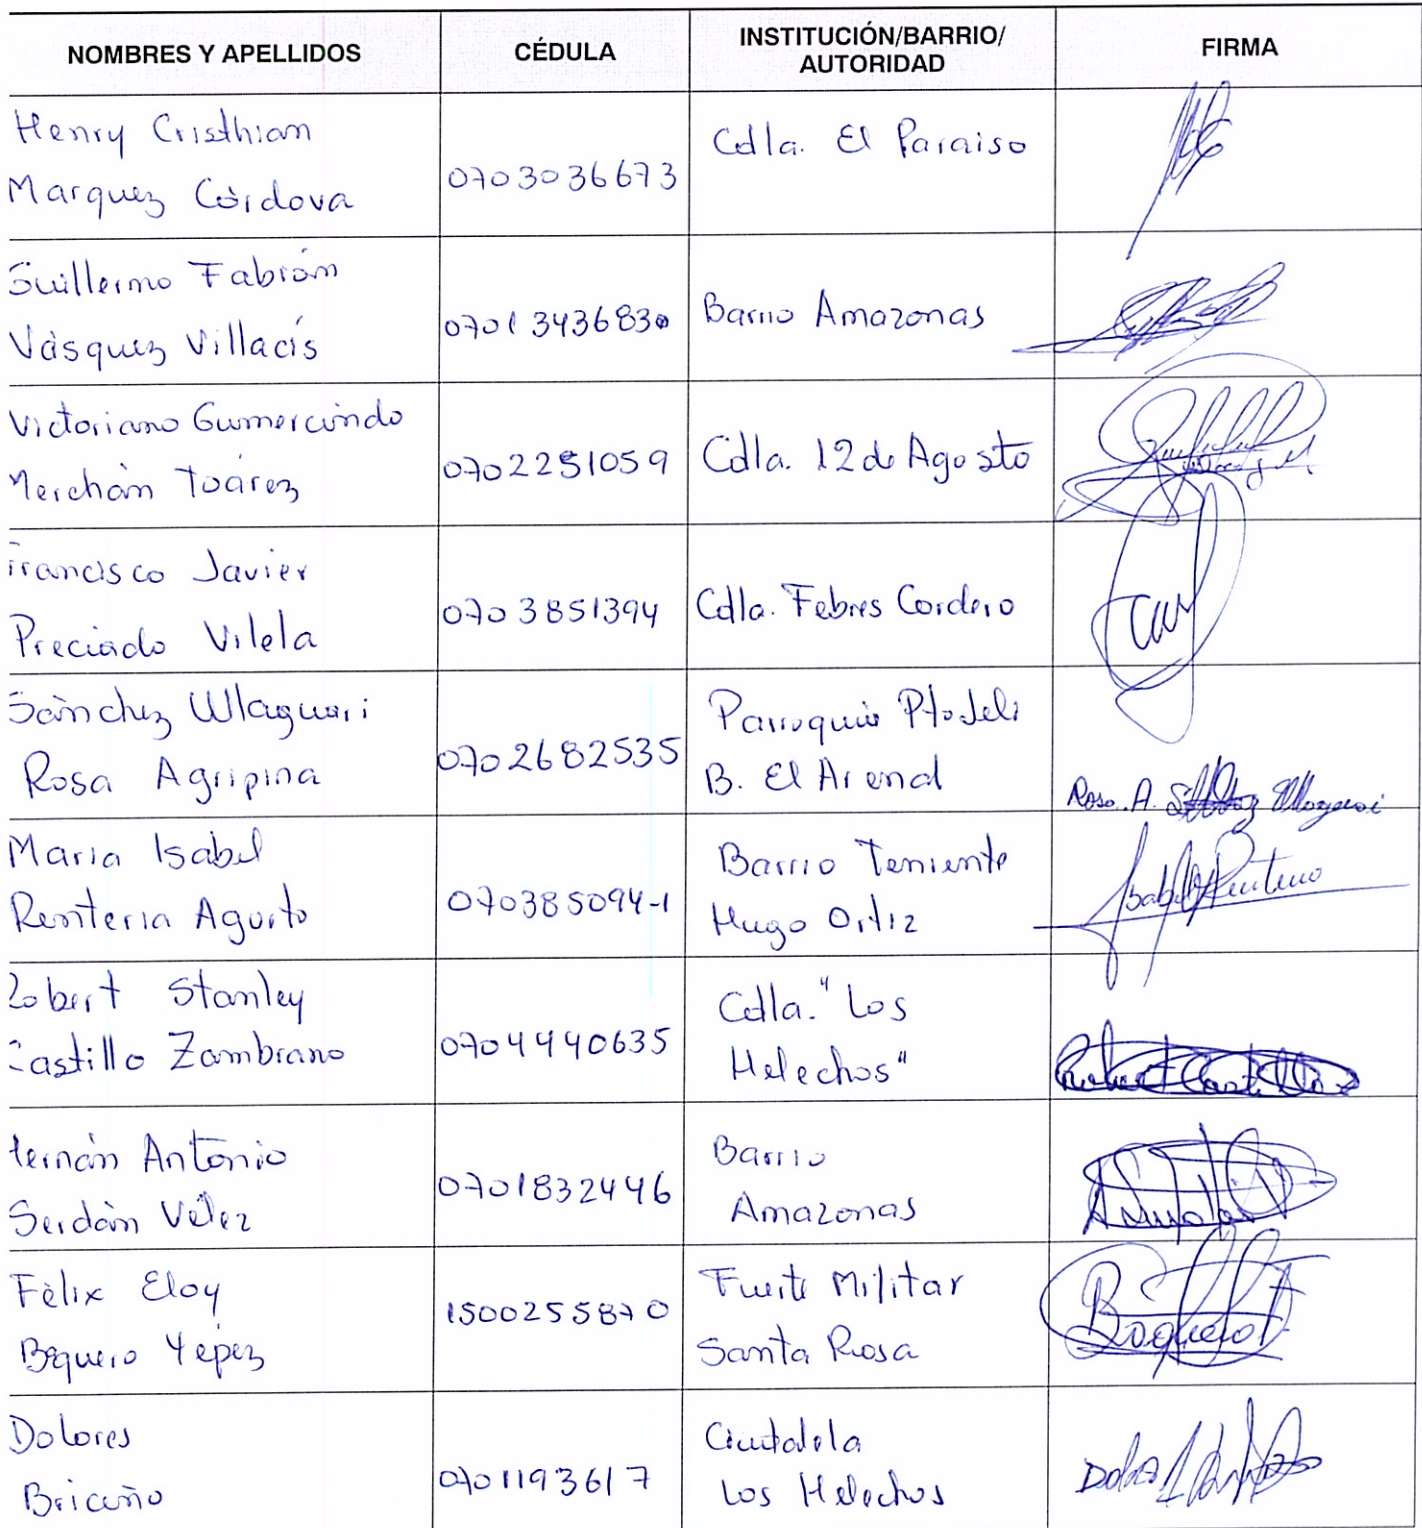 NOMBRES Y APELLIDOS
CÉDULA
INSTITUCIÓN/BARRIO/
AUTORIDAD
FIRMA
Henry Cristhian
Marquez Córdova
0703036673
Cdla. El Paraiso
Guillermo Fabián
Vásquez Villacís
0701343683
Barrio Amazonas
Victoriano Gumercindo
Merchán Toárez
0702251059
Cdla. 12 de Agosto
Francisco Javier
Preciado Vilela
0703851394
Cdla. Febres Cordero
Sánchez Ullaguari
Rosa Agripina
0702682535
Parroquia Pto Jeli
B. El Arenal
Rosa. A. Ullaguari
Maria Isabel
Renteria Agurto
070385094-1
Barrio Teniente
Hugo Ortiz
Isabel Renteria
Robert Stanley
Castillo Zambrano
0704440635
Cdla. "Los
Helechos"
Robert Castillo
Hernán Antonio
Serdán Vélez
0701832446
Barrio
Amazonas
Félix Eloy
Baquero Yépez
1500255870
Fuerte Militar
Santa Rosa
Baquero
Dolores
Briceño
0701193617
Ciudadela
Los Helechos